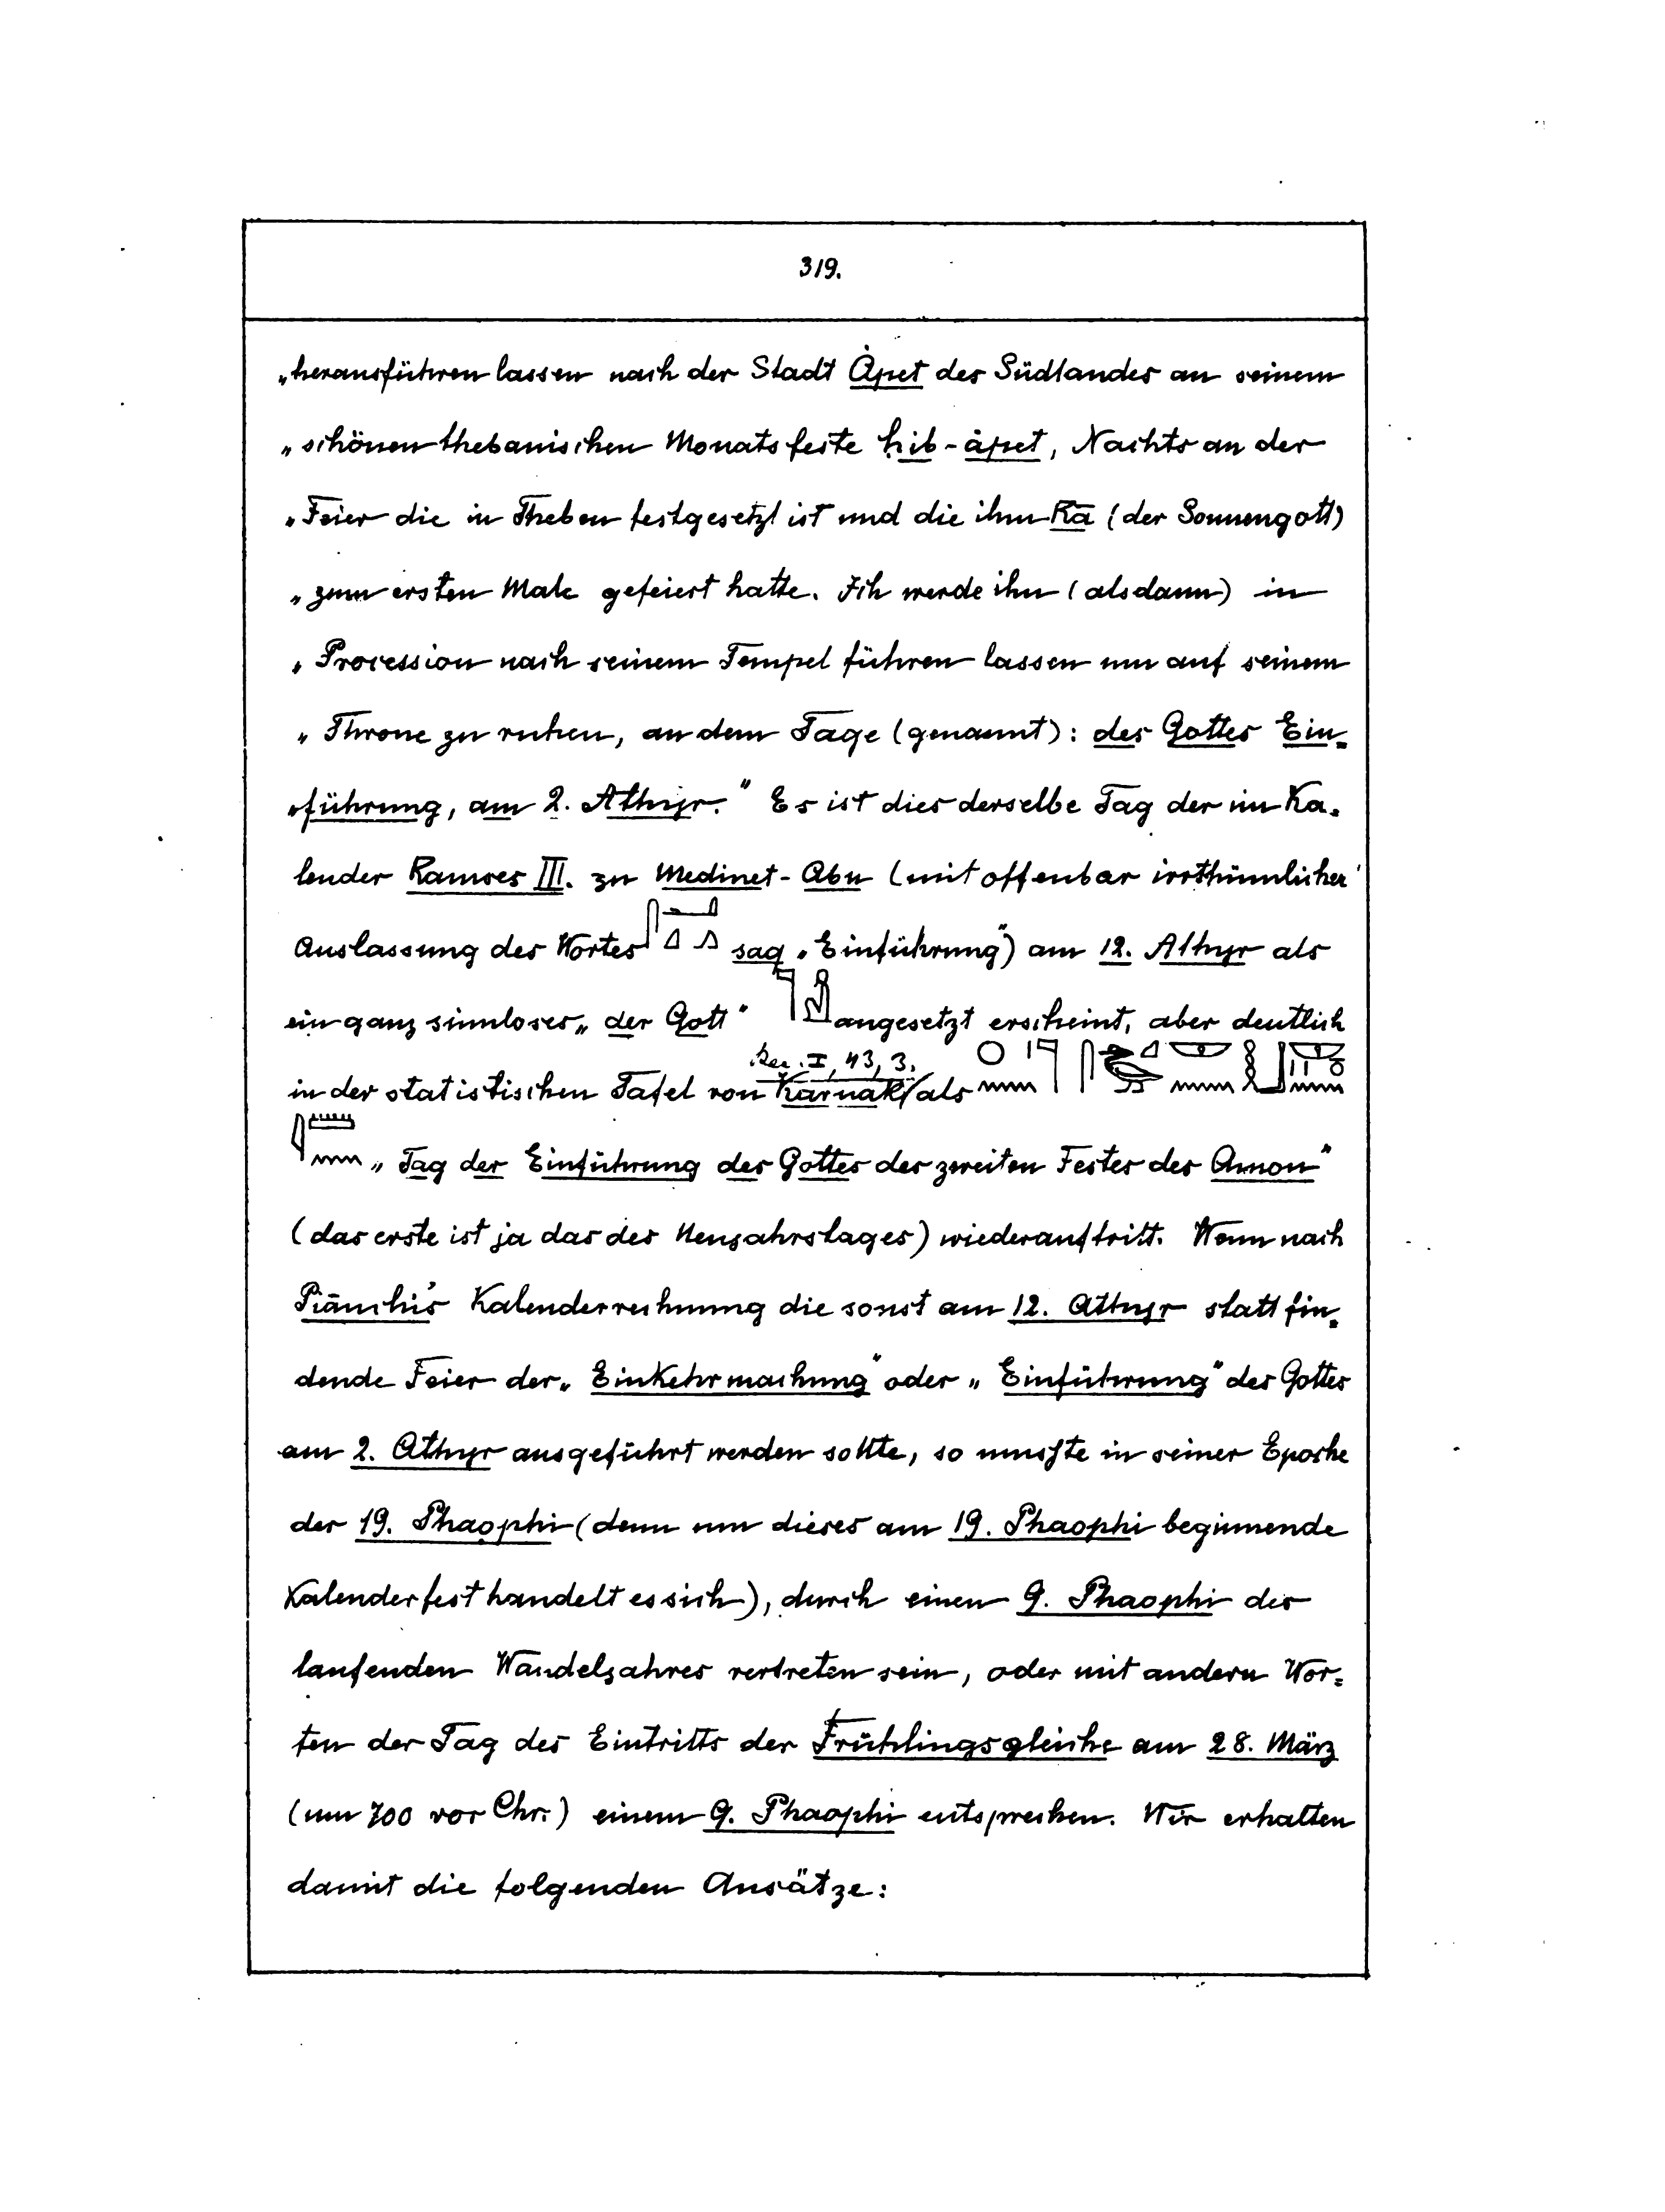 319.
„herausführen lassen nach der Stadt Ȧpet des Südlandes an seinem
„schönen thebanischen Monatsfeste ḥib-ȧpet, Nachts an der
„Feier die in Theben festgesetzt ist und die ihm Rā (der Sonnengott)
„zum ersten Male gefeiert hatte. Ich werde ihn (alsdann) in
„Procession nach seinem Tempel führen lassen um auf seinem
„Throne zu ruhen, an dem Tage (genannt): des Gottes Ein=
„führung, am 2. Athyr.“ Es ist dies derselbe Tag der im Ka=
lender Ramses III. zu Medinet-Abu (mit offenbar irrthümlicher
Auslassung des Wortes saq „Einführung“) am 12. Athyr als
ein ganz sinnloses „der Gott“ angesetzt erscheint, aber deutlich
Rec. I, 43, 3.
in der statistischen Tafel von Karnak als
„Tag der Einführung des Gottes des zweiten Festes des Amon“
(das erste ist ja das des Neujahrstages) wiederauftritt. Wenn nach
Piānchi's Kalenderrechnung die sonst am 12. Athyr stattfin=
dende Feier der „Einkehrmachung“ oder „Einführung“ des Gottes
am 2. Athyr ausgeführt werden sollte, so musste in seiner Epoche
der 19. Phaophi (denn um dieses am 19. Phaophi beginnende
Kalenderfest handelt es sich), durch einen 9. Phaophi des
laufenden Wandeljahres vertreten sein, oder mit andern Wor=
ten der Tag des Eintritts der Frühlingsgleiche am 28. März
(um 700 vor Chr.) einem 9. Phaophi entsprechen. Wir erhalten
damit die folgenden Ansätze: